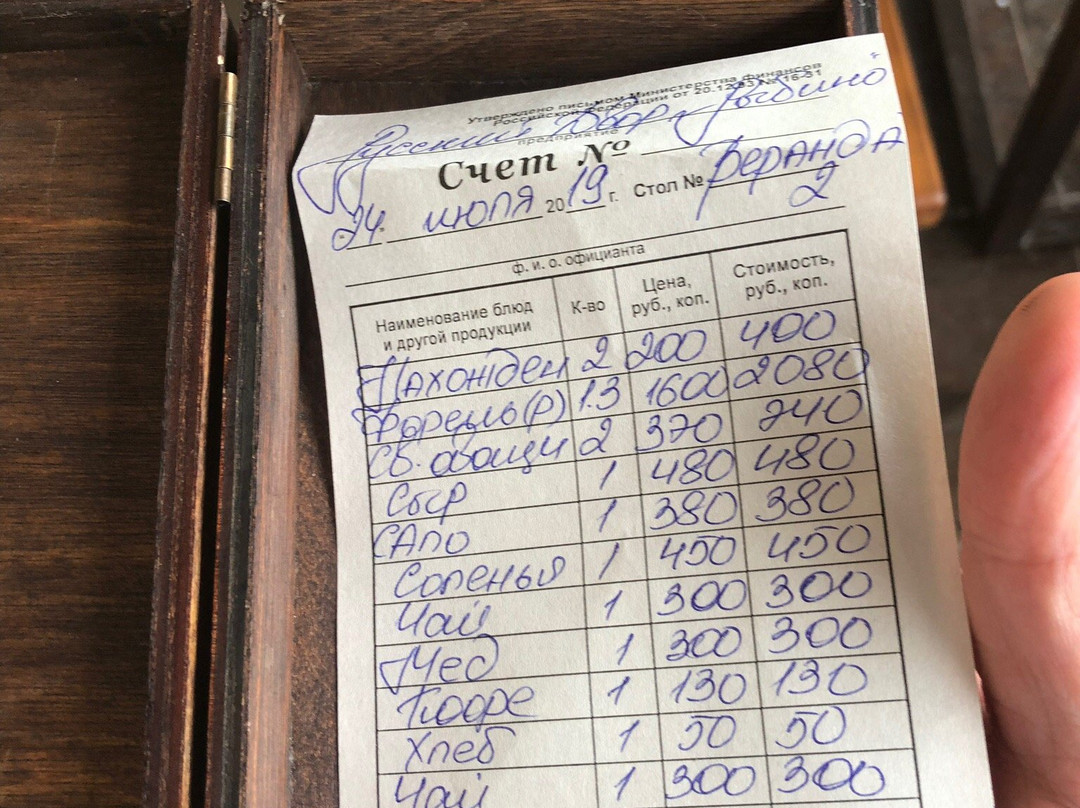 Утверждено письмом Министерства финансов
Российской Федерации от 20.12.93 № 16-51
Русский Двор Рыбино
предприятие
Счет №
24 июля 2019 г. Стол № Веранда
2
ф. и. о. официанта
Наименование блюд и другой продукции К-во Цена, руб., коп. Стоимость, руб., коп.
2 200 400
Форель(р) 1.3 1600 2080
Св. овощи 2 370 740
Сыр 1 480 480
Сало 1 380 380
Соленья 1 450 450
Чай 1 300 300
Мед 1 300 300
Кофе 1 130 130
Хлеб 1 50 50
Чай 1 300 300